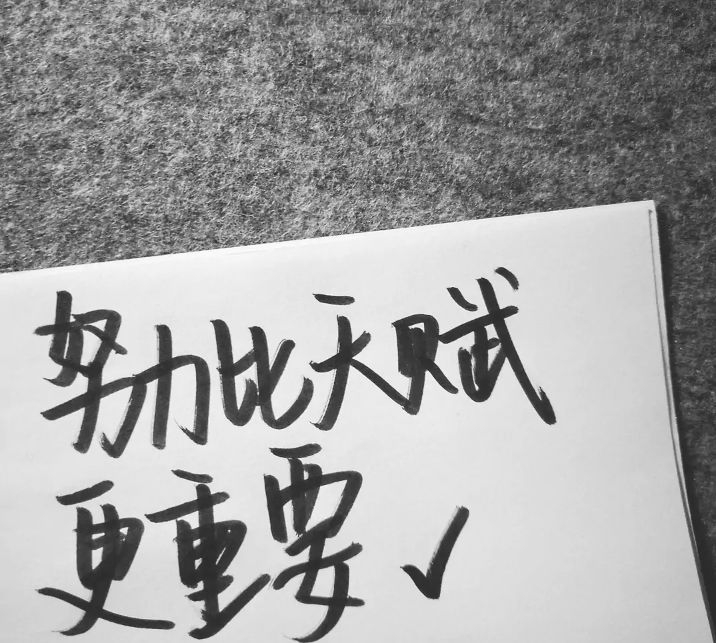 努力比天赋
更重要✓